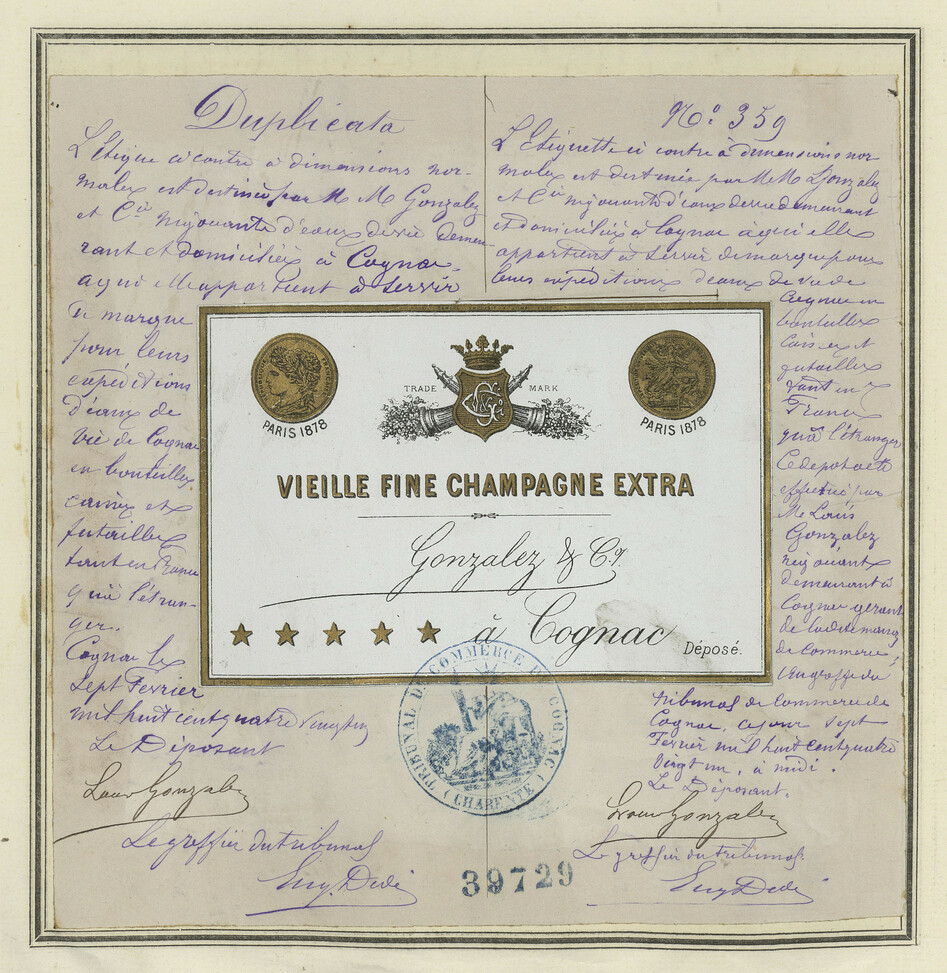 Duplicata
L'étique ci contre à dimensions nor-
males est destinée par M M Gonzalez
et Cie négociants d'eaux de vie demeu
rant et domiciliés à Cognac,
à qui elle appartient à servir
de marque
pour leurs
expéditions
d'eaux de
vie de Cognac
en bouteilles,
caisses et
futailles
tant en France
qu'à l'étran-
ger.
Cognac le
sept Février
mil huit cent quatre vingt un
Le Déposant
Louis Gonzalez
Le greffier du tribunal
Eug. Dedé
No. 359
L'Etiquette ci contre à dimensions nor
males est destinée par M M Gonzalez
et Cie négociants d'eaux de vie demeurant
et domiciliés à Cognac à qui elle
appartient à servir de marque pour
leurs expéditions d'eaux de vie de
Cognac en
bouteilles
caisses et
futailles
tant en
France
qu'à l'étranger
Ce depot a été
effectué par
Mr Louis
Gonzalez
négociant
demeurant à
Cognac gérant
de la dite maison
de commerce,
au greffe du
tribunal de Commerce de
Cognac, ce jour sept
Fevrier mil huit cent quatre
vingt un, à midi.
Le Déposant.
Louis Gonzalez
Le greffier du tribunal
Eug Dedé
REPUBLIQUE FRANÇAISE
PARIS 1878
TRADE MARK
PARIS 1878
VIEILLE FINE CHAMPAGNE EXTRA
Gonzalez & Co.
à Cognac
Déposé.
TRIBUNAL DE COMMERCE DE COGNAC
(CHARENTE)
39729